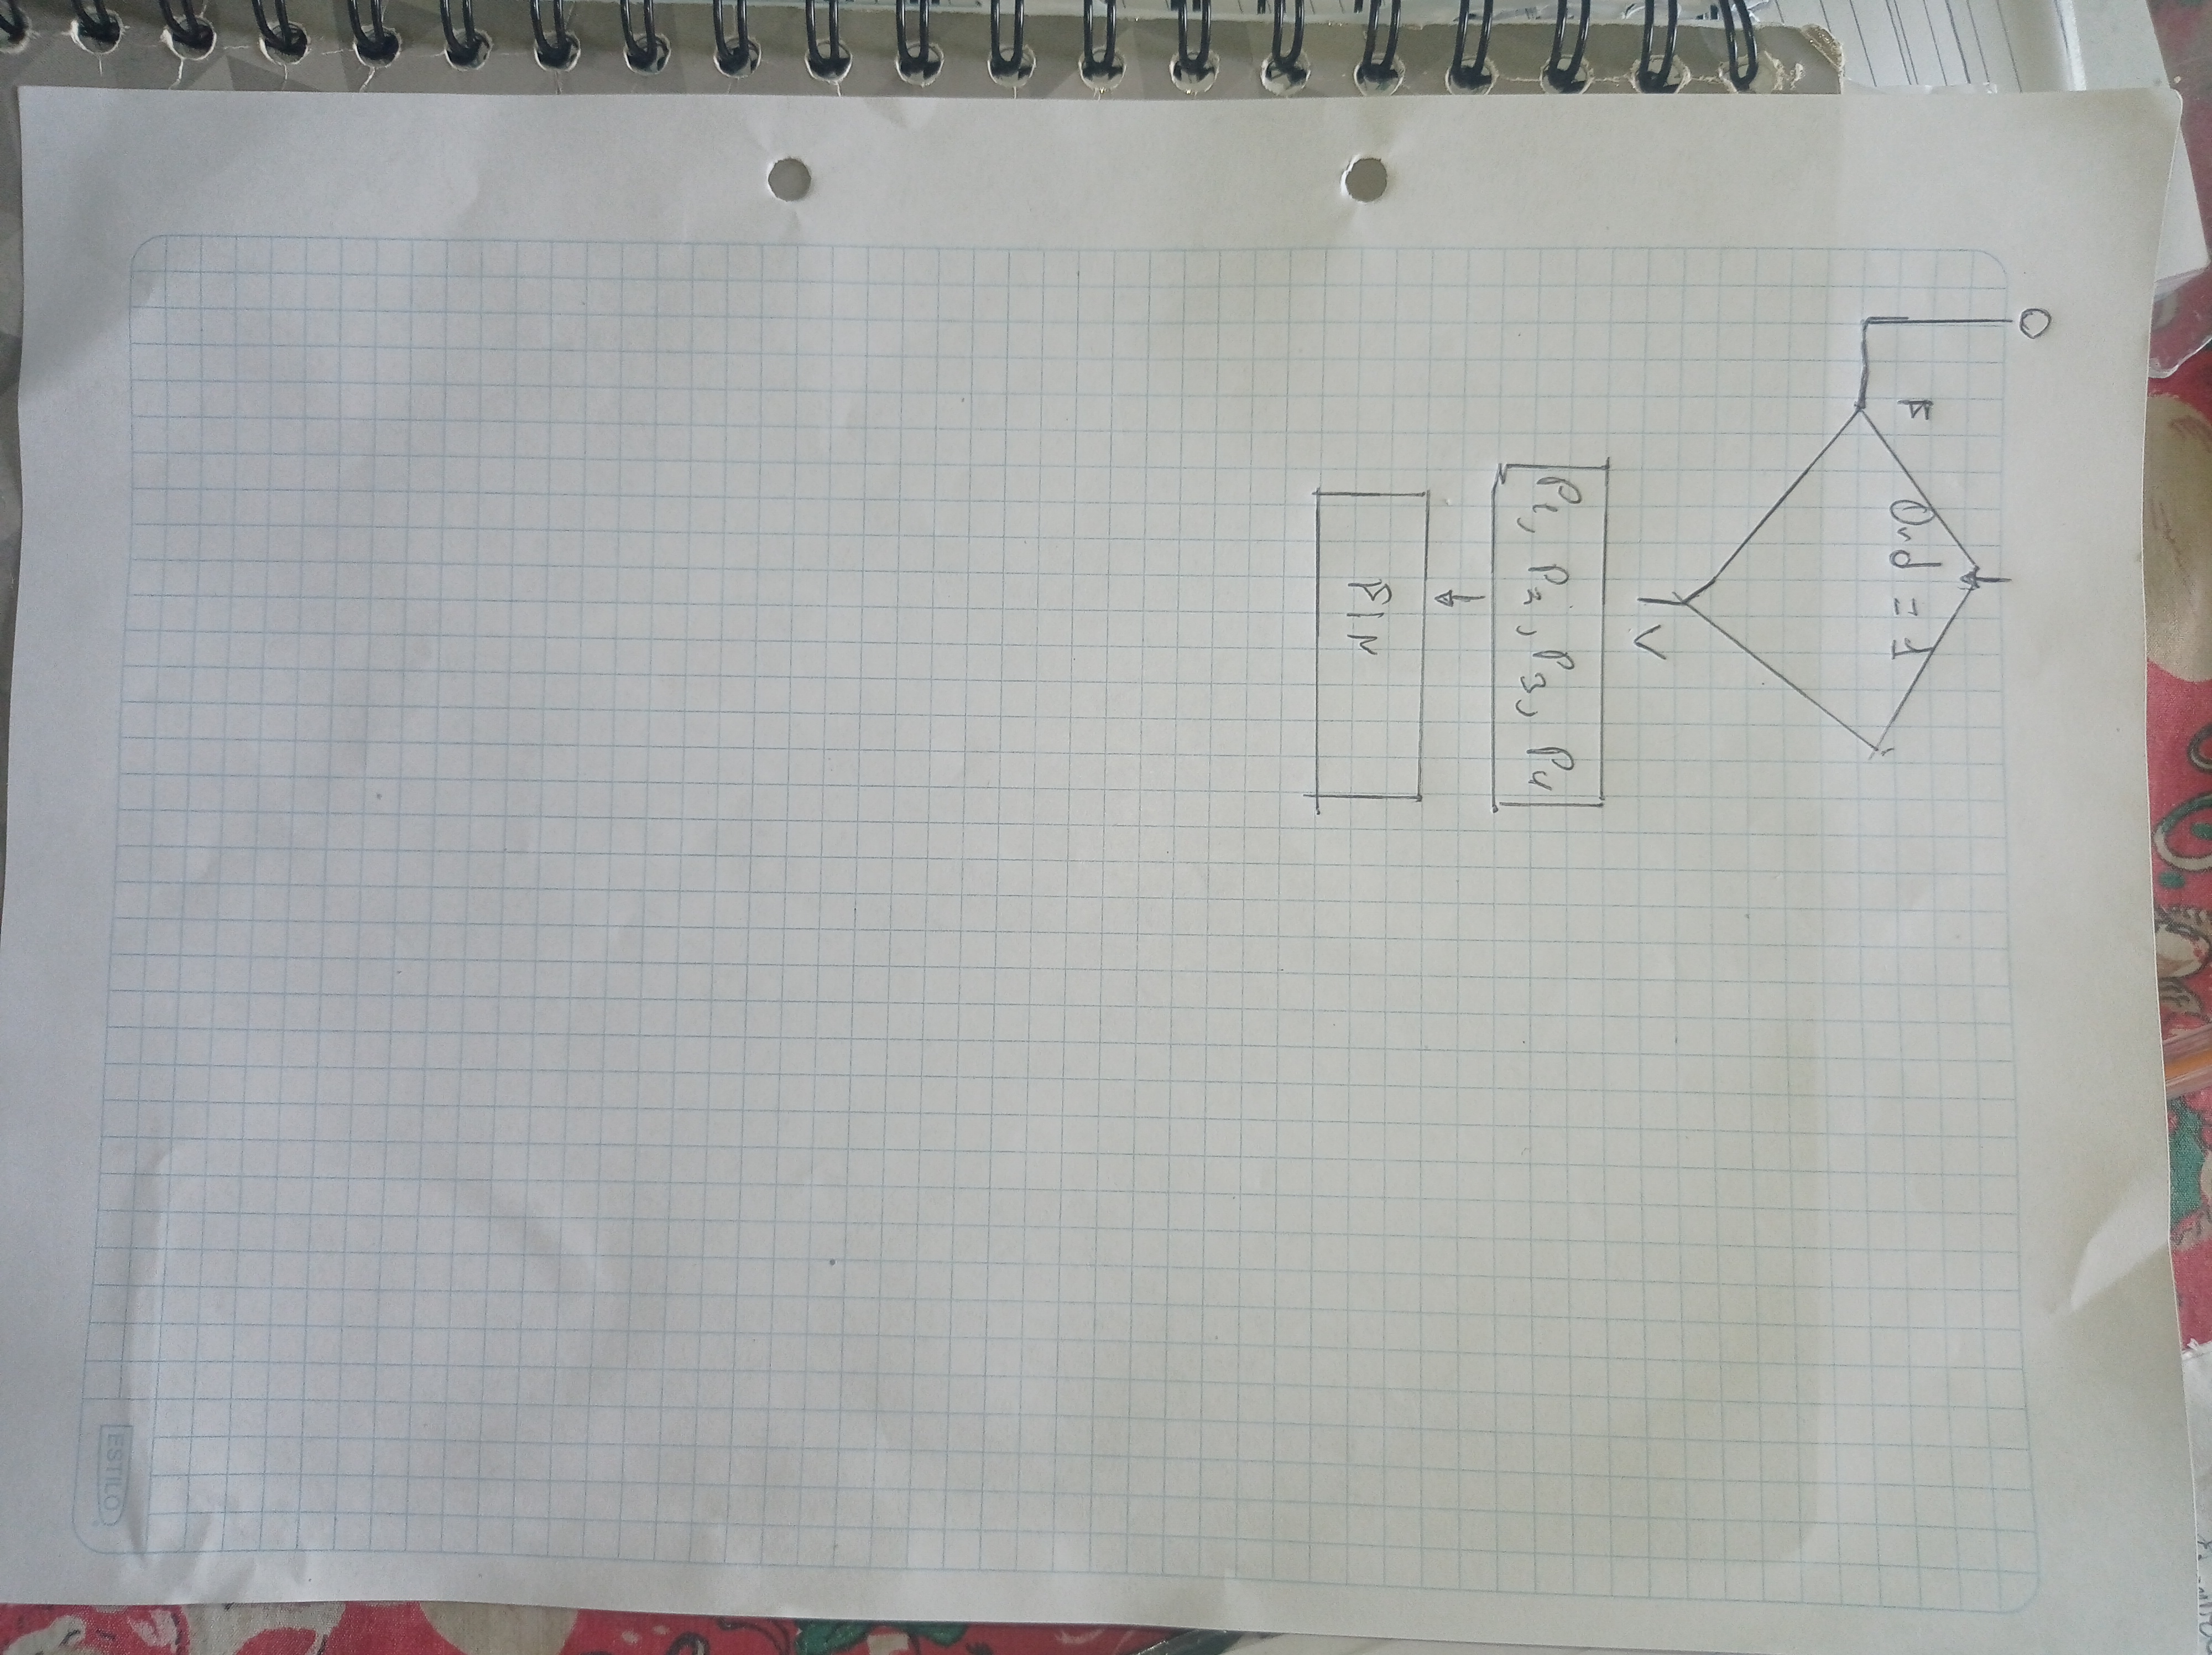 O
F
Ond = 1
V
P1, P2, P3, P4
FIN
ESTILO